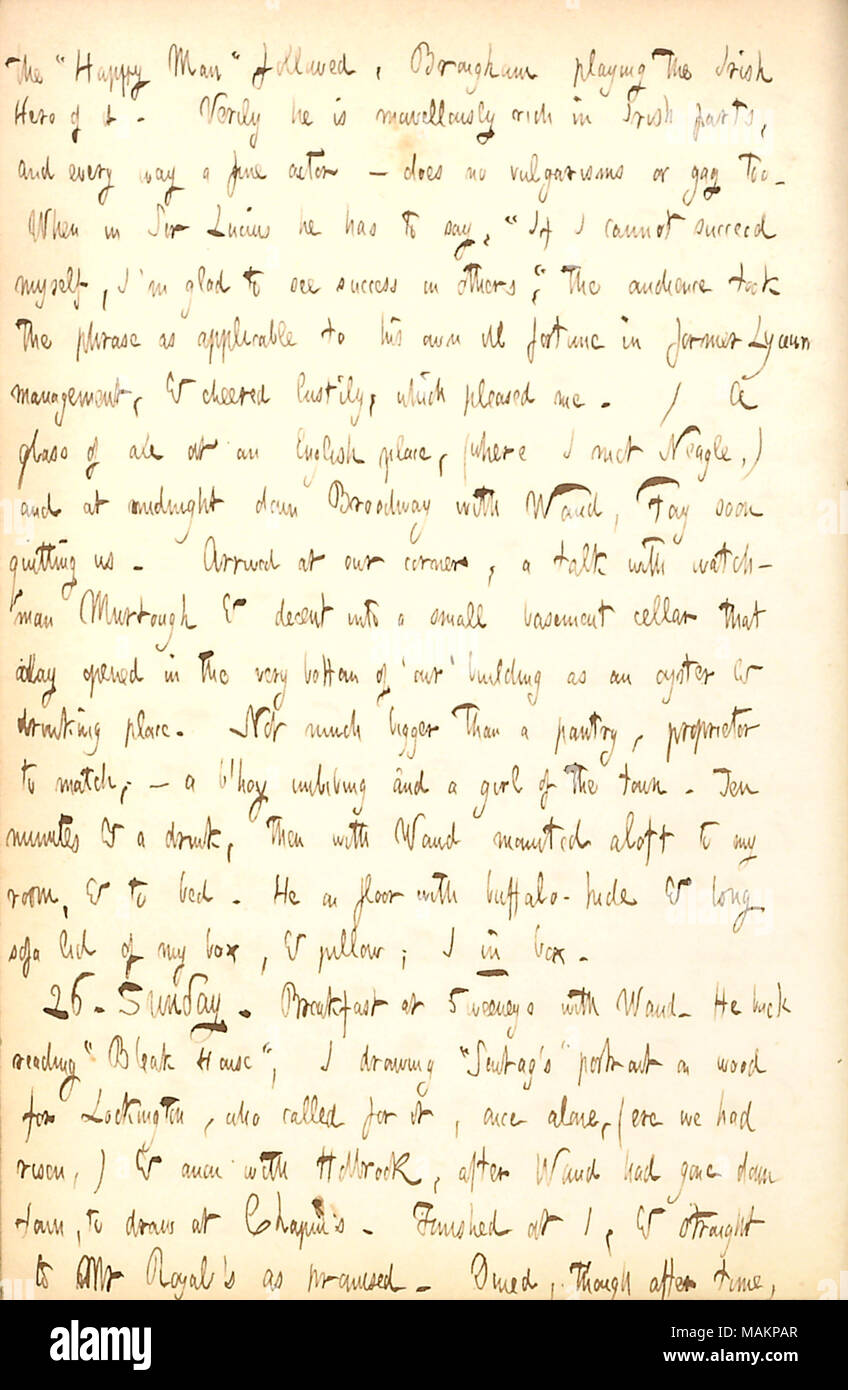 the "Happy Man" followed, Brougham playing the Irish
Hero of it. Verily he is marvellously rich in Irish parts,
and every way a fine actor — does no vulgarisms or gag too.
When in Sir Lucius he has to say, "If I cannot succeed
myself, I'm glad to see success in others", the audience took
the phrase as applicable to his own ill fortune in former Lyceum
management, & cheered lustily, which pleased me. / A
glass of ale at an English place, (where I met Neagle,)
and at midnight down Broadway with Waud, Fay soon
quitting us. Arrived at our corner, a talk with watch-
man Murtough & decent into a small basement cellar that
day opened in the very bottom of 'our' building as an oyster &
drinking place. Not much bigger than a pantry, proprietor
to match; — a b'hoy imbibing and a girl of the town. Ten
minutes & a drink, then with Waud mounted aloft to my
room, & to bed. He on floor with buffalo-hide & long
sofa lid of my box, & pillow; I in box.
26. Sunday. Breakfast at Sweeneys with Waud. He back
reading "Bleak House", I drawing "Sontag's" portrait on wood
for Lockington, who called for it, once alone, (ere we had
risen,) & anon with Holbrook, after Waud had gone down
town, to draw at Chapin's. Finished at 1, & straight
to Mr Royal's as promised. Dined, though after time,
alamy
Image ID: MAKPAR
www.alamy.com